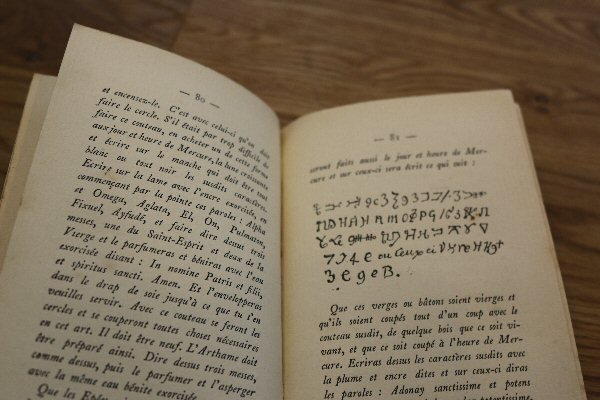 — 80 —
et encensez-le. C'est avec celui-ci qu'on doit
faire le cercle. S'il était par trop difficile de
faire ce couteau, en acheter un de cette forme
aux jour et heure de Mercure, la lune croissante
et écrire sur le manche qui doit être tout
blanc ou tout noir les susdits caractères
Ecrire sur la lame avec l'encre exorcisée, en
commençant par la pointe ces paroles : Alpha
et Omega, Aglata, El, On, Pulmaton,
Fixuel, Ayfudé, et faire dire dessus trois
messes, une du Saint-Esprit et deux de la
Vierge et le parfumeras et béniras avec l'eau
exorcisée disant : In nomine Patris et filii,
et spiritus sancti. Amen. Et l'envelopperas
dans le drap de soie jusqu'à ce que tu t'en
veuilles servir. Avec ce couteau se feront les
cercles et se couperont toutes choses nécessaires
en cet art. Il doit être neuf. L'Arthame doit
être préparé ainsi. Dire dessus trois messes,
comme dessus, puis le parfumer et l'asperger
avec la même eau bénite exorcisée.
Que les
— 81 —
seront faits aussi le jour et heure de Mer-
cure et sur ceux-ci sera écrit ce qui suit :
ou Ceux ci
Que ces verges ou bâtons soient vierges et
qu'ils soient coupés tout d'un coup avec le
couteau susdit, de quelque bois que ce soit vi-
vant, et que ce soit coupé à l'heure de Mer-
cure. Ecriras dessus les caractères susdits avec
la plume et encre dites et sur ceux-ci diras
les paroles : Adonay sanctissime et potens